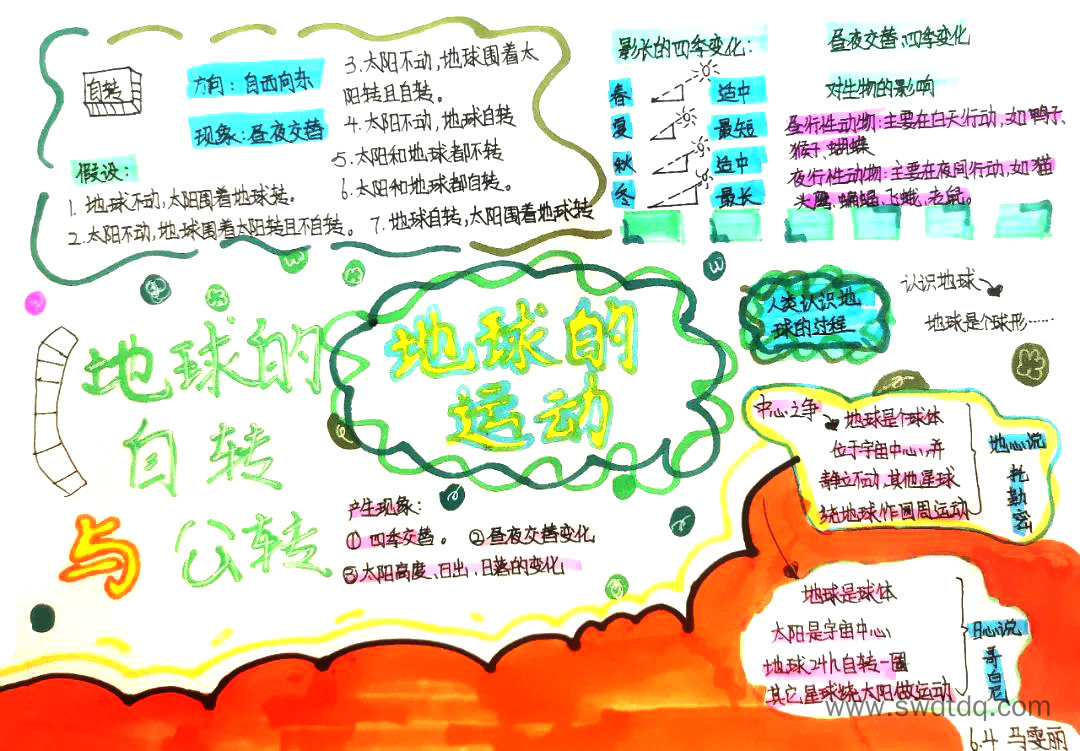 自转
方向：自西向东
现象：昼夜交替
假设：
1. 地球不动,太阳围着地球转。
2.太阳不动,地球围着太阳转且不自转。
3.太阳不动,地球围着太
阳转且自转。
4.太阳不动,地球自转
5.太阳和地球都不转
6.太阳和地球都自转。
7.地球自转,太阳围着地球转
影长的四季变化：
春 适中
夏 最短
秋 适中
冬 最长
昼夜交替、四季变化
对生物的影响
昼行性动物：主要在白天行动,如鸭子、
猴子、蝴蝶
夜行性动物：主要在夜间行动,如猫
头鹰、蝙蝠、飞蛾、老鼠。
地球的
运动
地球的
自转
与 公转
产生现象：
① 四季交替。 ②昼夜交替变化
③太阳高度、日出、日落的变化
人类认识地
球的过程
认识地球
地球是个球形……
中心之争
地球是个球体
位于宇宙中心,并
静立不动,其他星球
绕地球作圆周运动
地心说
托勒密
地球是球体
太阳是宇宙中心
地球24h自转一圈
其它星球绕太阳做运动
日心说
哥白尼
www.swdtdq.com
6.4 马雯丽